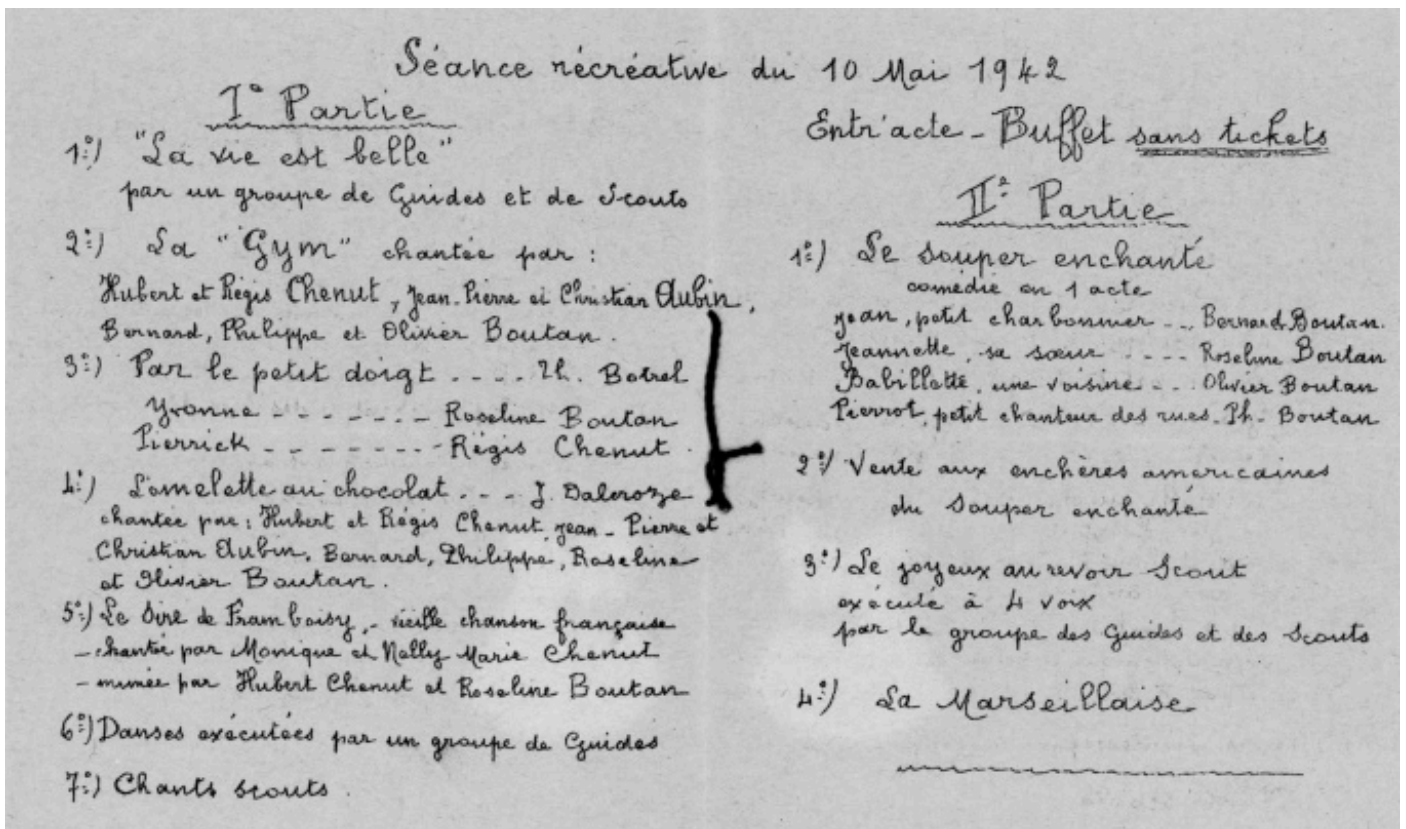 Séance récréative du 10 Mai 1942
I° Partie
1°) "La vie est belle"
par un groupe de Guides et de Scouts
2°) La "Gym" chantée par :
Hubert et Régis Chenut, Jean-Pierre et Christian Aubin,
Bernard, Philippe et Olivier Boutan.
3°) Par le petit doigt .... Th. Botrel
Yvonne ------- Roseline Boutan
Pierrick -------- Régis Chenut.
4°) L'omelette au chocolat --- J. Dalcroze
chantée par : Hubert et Régis Chenut, Jean-Pierre et
Christian Aubin, Bernard, Philippe, Roseline
et Olivier Boutan.
5°) Le Sire de Framboisy, - vieille chanson française
- chantée par Monique et Nelly-Marie Chenut
- mimée par Hubert Chenut et Roseline Boutan
6°) Danses exécutées par un groupe de Guides
7°) Chants scouts.
Entr'acte - Buffet sans tickets
II° Partie
1°) Le souper enchanté
comédie en 1 acte
Jean, petit charbonnier --- Bernard Boutan.
Jeannette, sa sœur ---- Roseline Boutan
Babillette, une voisine --- Olivier Boutan
Pierrot, petit chanteur des rues - Ph. Boutan
2°) Vente aux enchères américaines
du Souper enchanté
3°) Le joyeux au revoir Scout
exécuté à 4 voix
par le groupe des Guides et des Scouts
4°) La Marseillaise